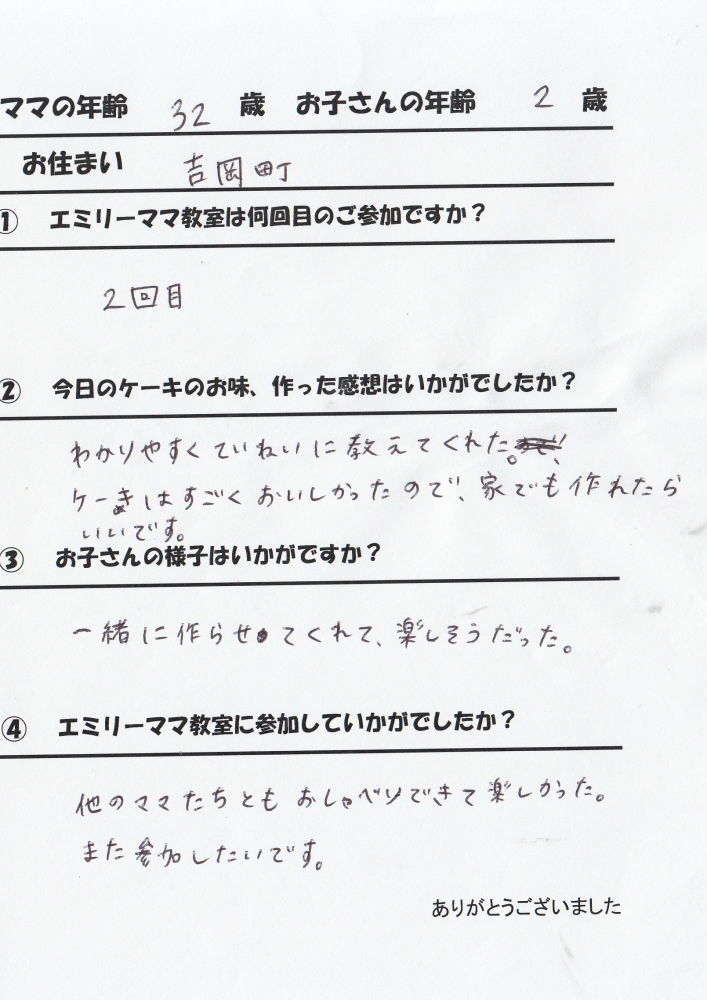 ママの年齢 32 歳 お子さんの年齢 2 歳
お住まい 吉岡町
① エミリーママ教室は何回目のご参加ですか？
2回目
② 今日のケーキのお味、作った感想はいかがでしたか？
わかりやすくていねいに教えてくれた。
ケーキはすごくおいしかったので、家でも作れたら
いいです。
③ お子さんの様子はいかがですか？
一緒に作らせてくれて、楽しそうだった。
④ エミリーママ教室に参加していかがでしたか？
他のママたちともおしゃべりできて楽しかった。
また参加したいです。
ありがとうございました